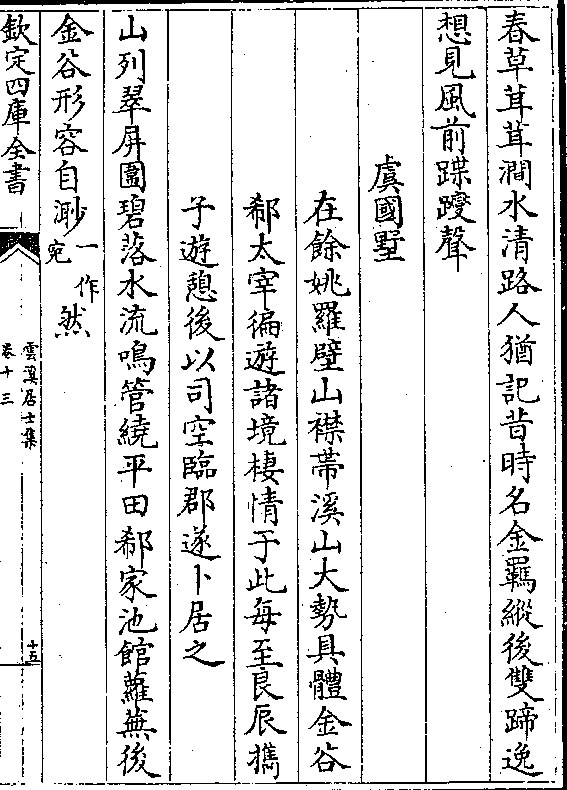 春草茸茸澗水清路人猶記昔時名金羈縱後雙蹄逸
想見風前蹀躞聲
虞國墅
在餘姚羅壁山襟帶溪山大勢具體金谷
郗太宰徧遊諸境棲情于此每至良辰攜
子遊憩後以司空臨郡遂卜居之
山列翠屏圍碧落水流鳴管繞平田郗家池館蘿蕪後
金谷形容自渺一作宛然
欽定四庫全書
雲溪居士集
卷十三
十五